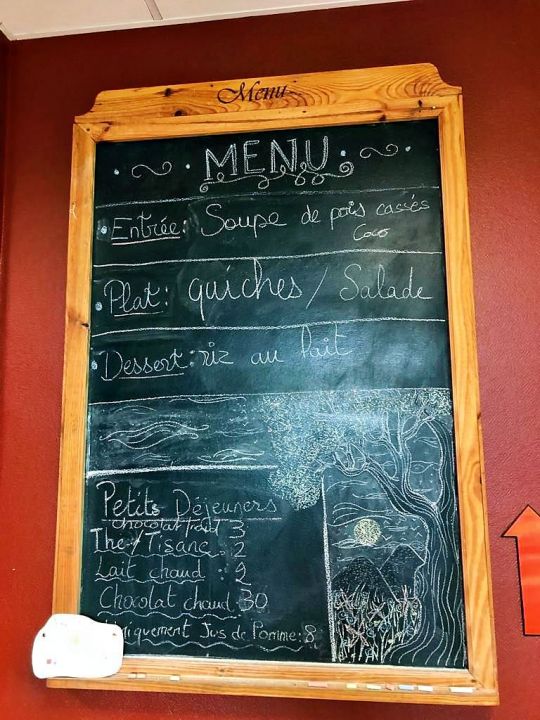 Menu
MENU
Entrée: Soupe de pois cassés
Coco
Plat: quiches / Salade
Dessert: riz au lait
Petits Déjeuners
chocolat froid 3
Thé/Tisane 2
Lait chaud : 2
Chocolat chaud: 30
Uniquement Jus de Pomme: 8